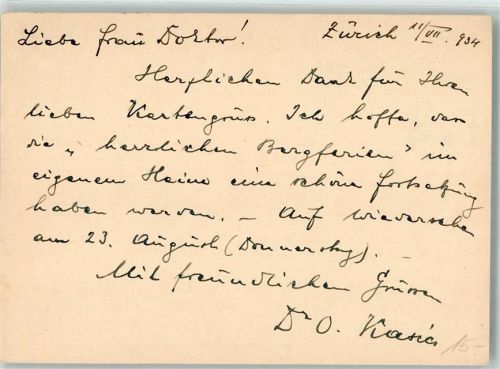 Liebe Frau Doktor! Zürich 11/VII. 934
Herzlichen Dank für Ihren
lieben Kartengruss. Ich hoffe, dass
die „herrlichen Bergferien" im
eigenen Heime eine schöne Fortsetzung
haben werden. – Auf Wiedersehen
am 23. August (Donnerstag). –
Mit freundlichen Grüssen
Dr O.
15.-